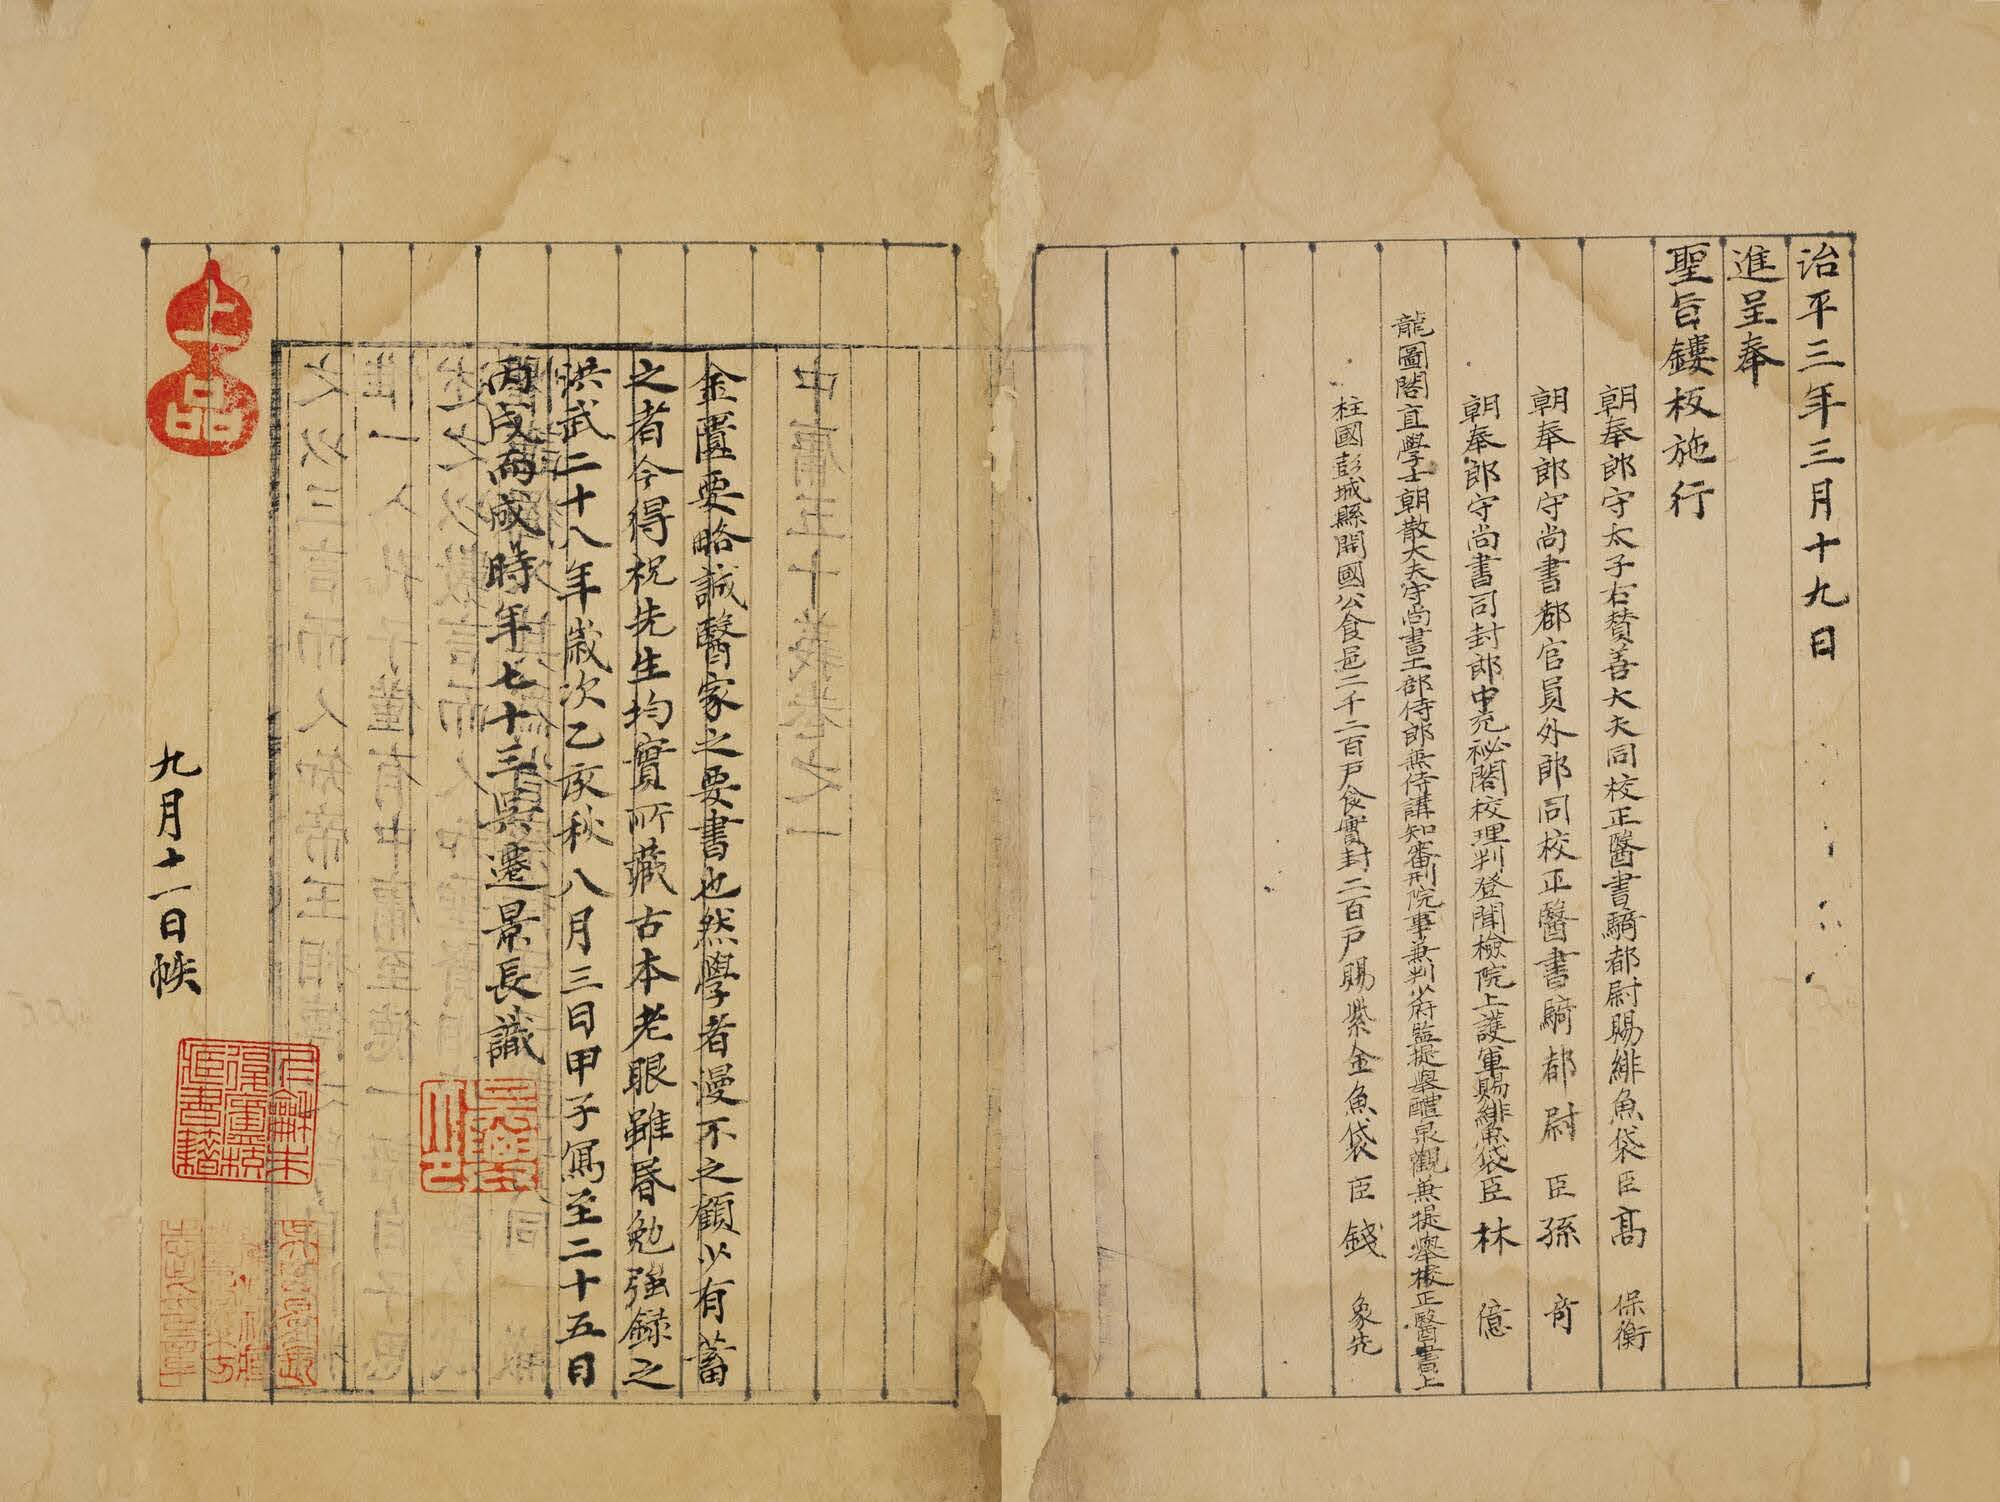 治平三年三月十九日
進呈奉
聖旨鏤板施行
朝奉郎守太子右贊善大夫同校正醫書騎都尉賜緋魚袋臣高保衡
朝奉郎守尚書都官員外郎同校正醫書騎都尉臣孫奇
朝奉郎守尚書司封郎中充祕閣校理判登聞檢院上護軍賜緋魚袋臣林億
龍圖閣直學士朝散大夫守尚書工部侍郎兼侍講知審刑院事兼判少府監提舉醴泉觀兼提舉校正醫書上
柱國彭城縣開國公食邑二千二百戶食實封二百戶賜紫金魚袋臣錢象先
中庸五十義卷之一
金匱要略誠醫家之要書也然學者漫不之顧少有蓄
之者今得祝先生均實所藏古本老眼雖昏勉強録之
洪武二十八年歲次乙亥秋八月三日甲子寫至二十五日
丙戌而成時年七十三吳遷景長識
九月十一日帙
上品